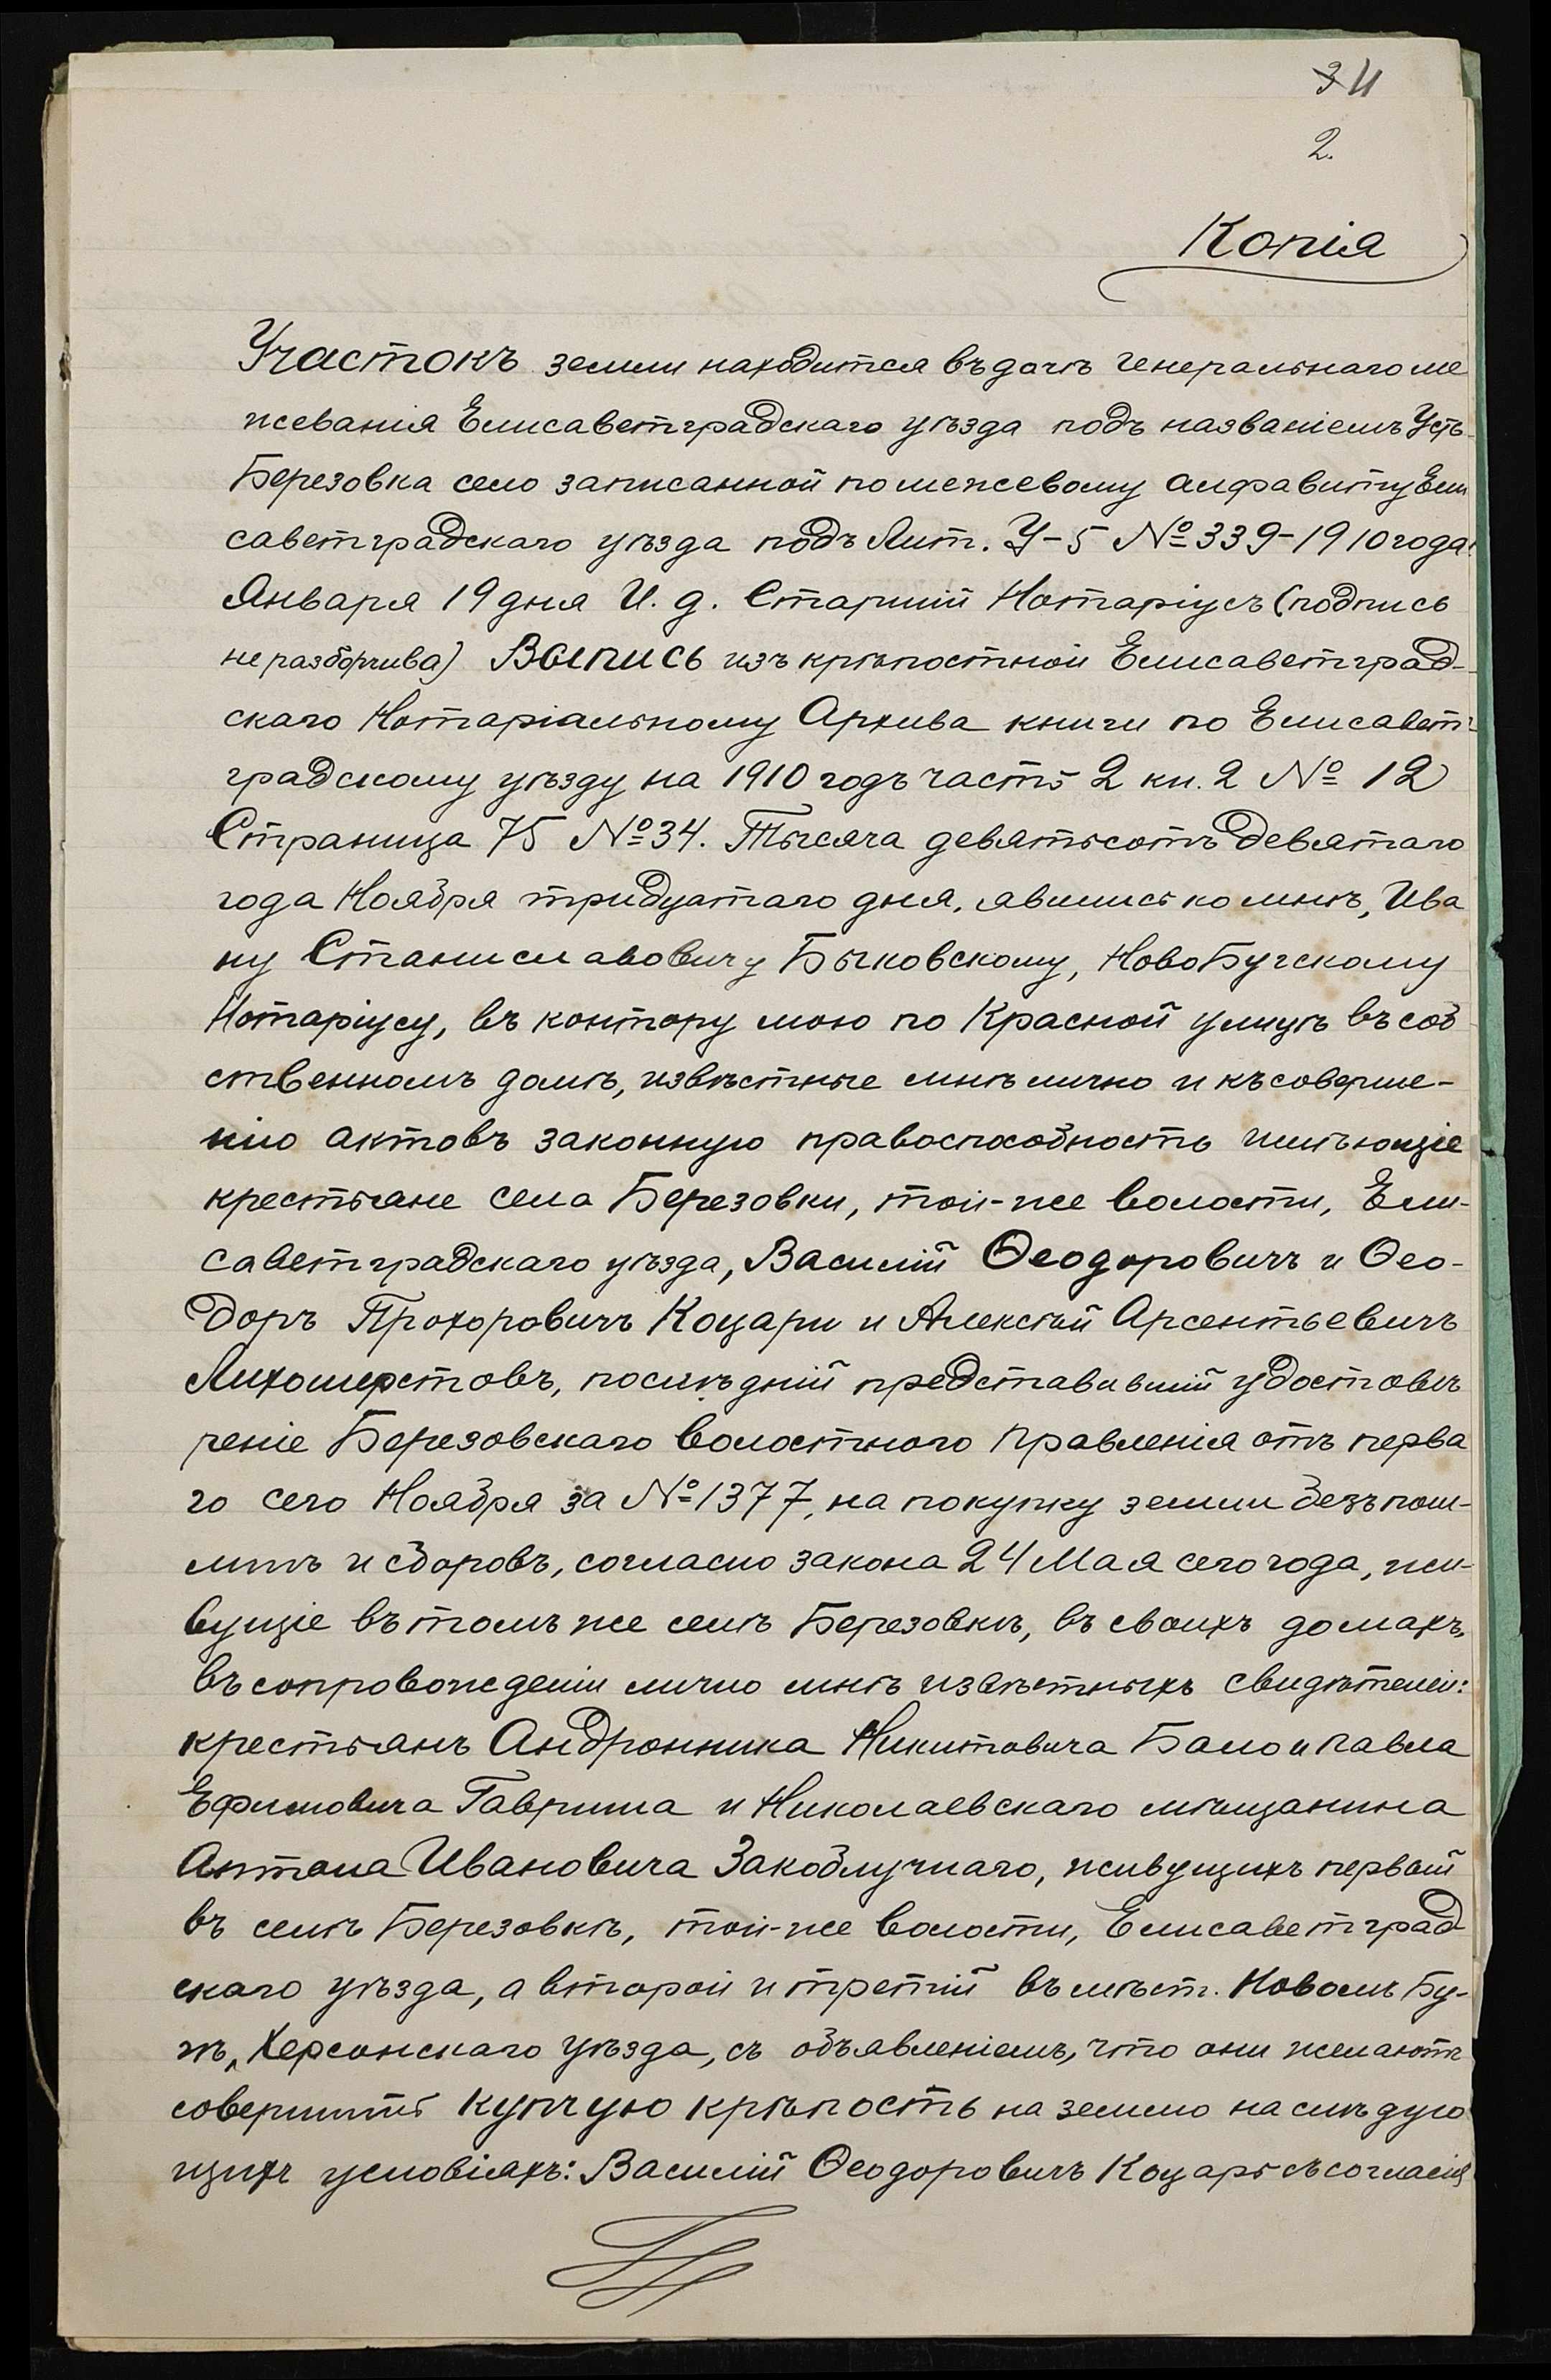 3 11
2.
Копія
Участокъ земли находится въ дачѣ генеральнаго ме
жеванія Елисаветградскаго уѣзда подъ названіемъ Усть-
Березовка село записанной по межевому алфавиту Ели
саветградскаго уѣзда подъ Лит. У-5 № 339-1910 года
Января 19 дня И. д. Старшій Нотаріусъ (подпись
неразборчива) Выпись изъ крѣпостной Елисаветград-
скаго Нотаріальному Архива книги по Елисавет-
градскому уѣзду на 1910 годъ часть 2 кн. 2 № 12
Страница 75 № 34. Тысяча девятьсотъ девятаго
года Ноября тридцатаго дня, явились ко мнѣ, Ива
ну Станиславовичу Бычковскому, НовоБугскому
Нотаріусу, въ контору мою по Красной улицѣ въ соб
ственномъ домѣ, извѣстные мнѣ лично и къ соверше-
нію актовъ законную правоспособность имѣющіе
крестьяне села Березовки, той-же волости, Ели-
саветградскаго уѣзда, Василій Ѳеодоровичъ и Ѳео-
доръ Прохоровичъ Коцари и Алексѣй Арсентьевичъ
Лихошерстовъ, послѣдній представившій удостовѣ
реніе Березовскаго волостного Правленія отъ перва
го сего Ноября за № 1377, на покупку земли безъ пош-
линъ и сборовъ, согласно закона 24 Мая сего года, жи-
вущіе въ томъ же селѣ Березовкѣ, въ своихъ домахъ,
въ сопровожденіи лично мнѣ извѣстныхъ свидѣтелей:
крестьянъ Андронника Никитовича Бало и Павла
Ефимовича Гавриша и Николаевскаго мѣщанина
Антона Ивановича Закоблучнаго, живущихъ первый
въ селѣ Березовкѣ, той-же волости, Елисаветград
скаго уѣзда, а второй и третій въ мѣст. Новомъ Бу-
гѣ, Херсонскаго уѣзда, съ объявленіемъ, что они желаютъ
совершить купчую крѣпость на землю на слѣдую
щихъ условіяхъ: Василій Ѳеодоровичъ Коцарь съ согласія